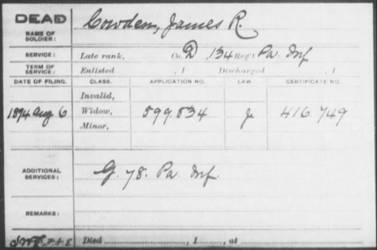 DEAD
NAME OF SOLDIER: Cowden, James R.
SERVICE: Late rank, Co. D, 134 Reg't Pa. Inf
TERM OF SERVICE: Enlisted , 1 Discharged , 1
DATE OF FILING. CLASS. APPLICATION NO. LAW. CERTIFICATE NO.
Invalid,
1894 Aug 6 Widow, 599.834 416.749
Minor,
ADDITIONAL SERVICES: G. 78. Pa Inf
REMARKS:
Died , 1 , at